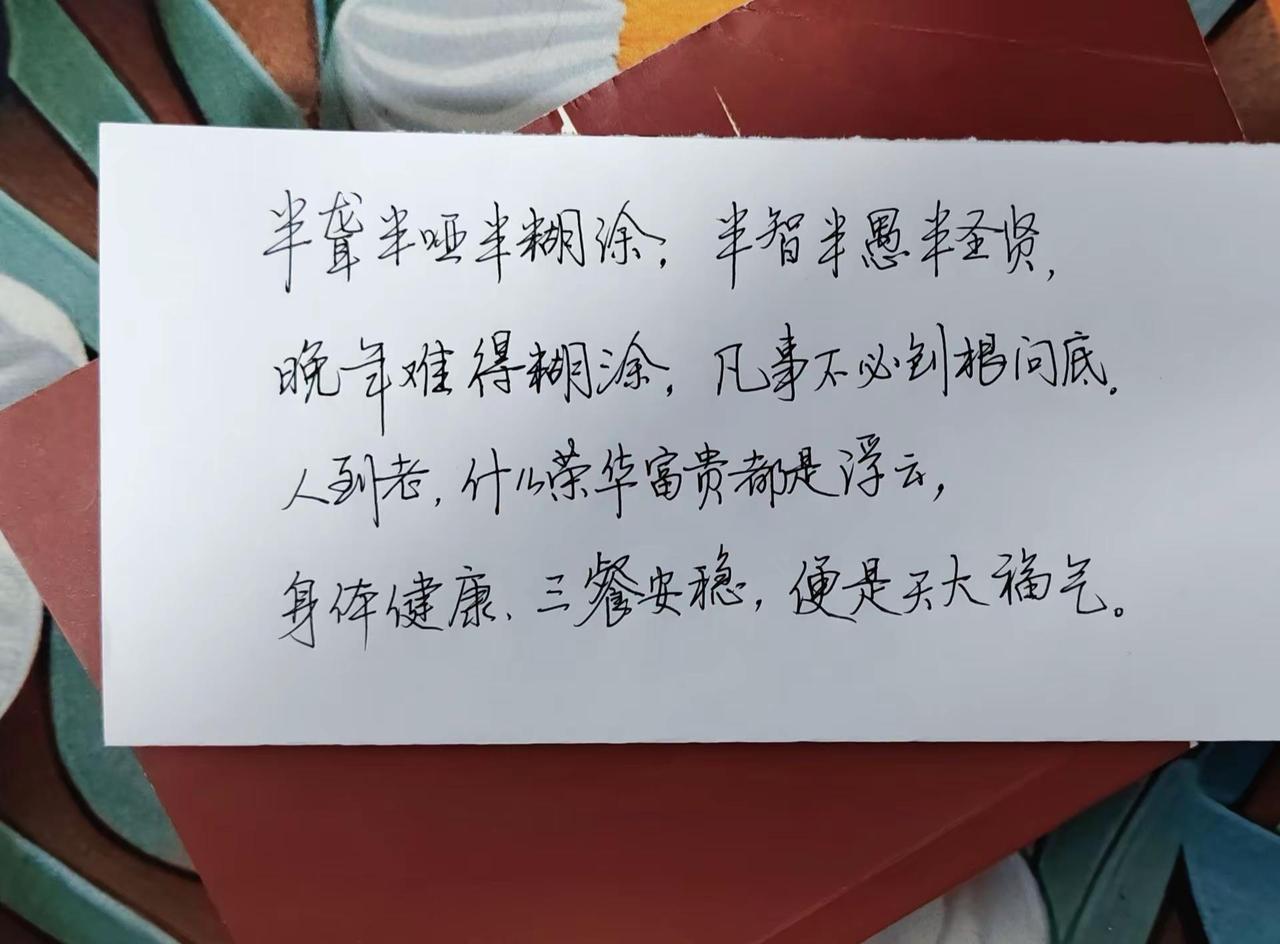 半聋半哑半糊涂，半智半愚半圣贤，
晚年难得糊涂，凡事不必刨根问底。
人到老，什么荣华富贵都是浮云，
身体健康、三餐安稳，便是天大福气。